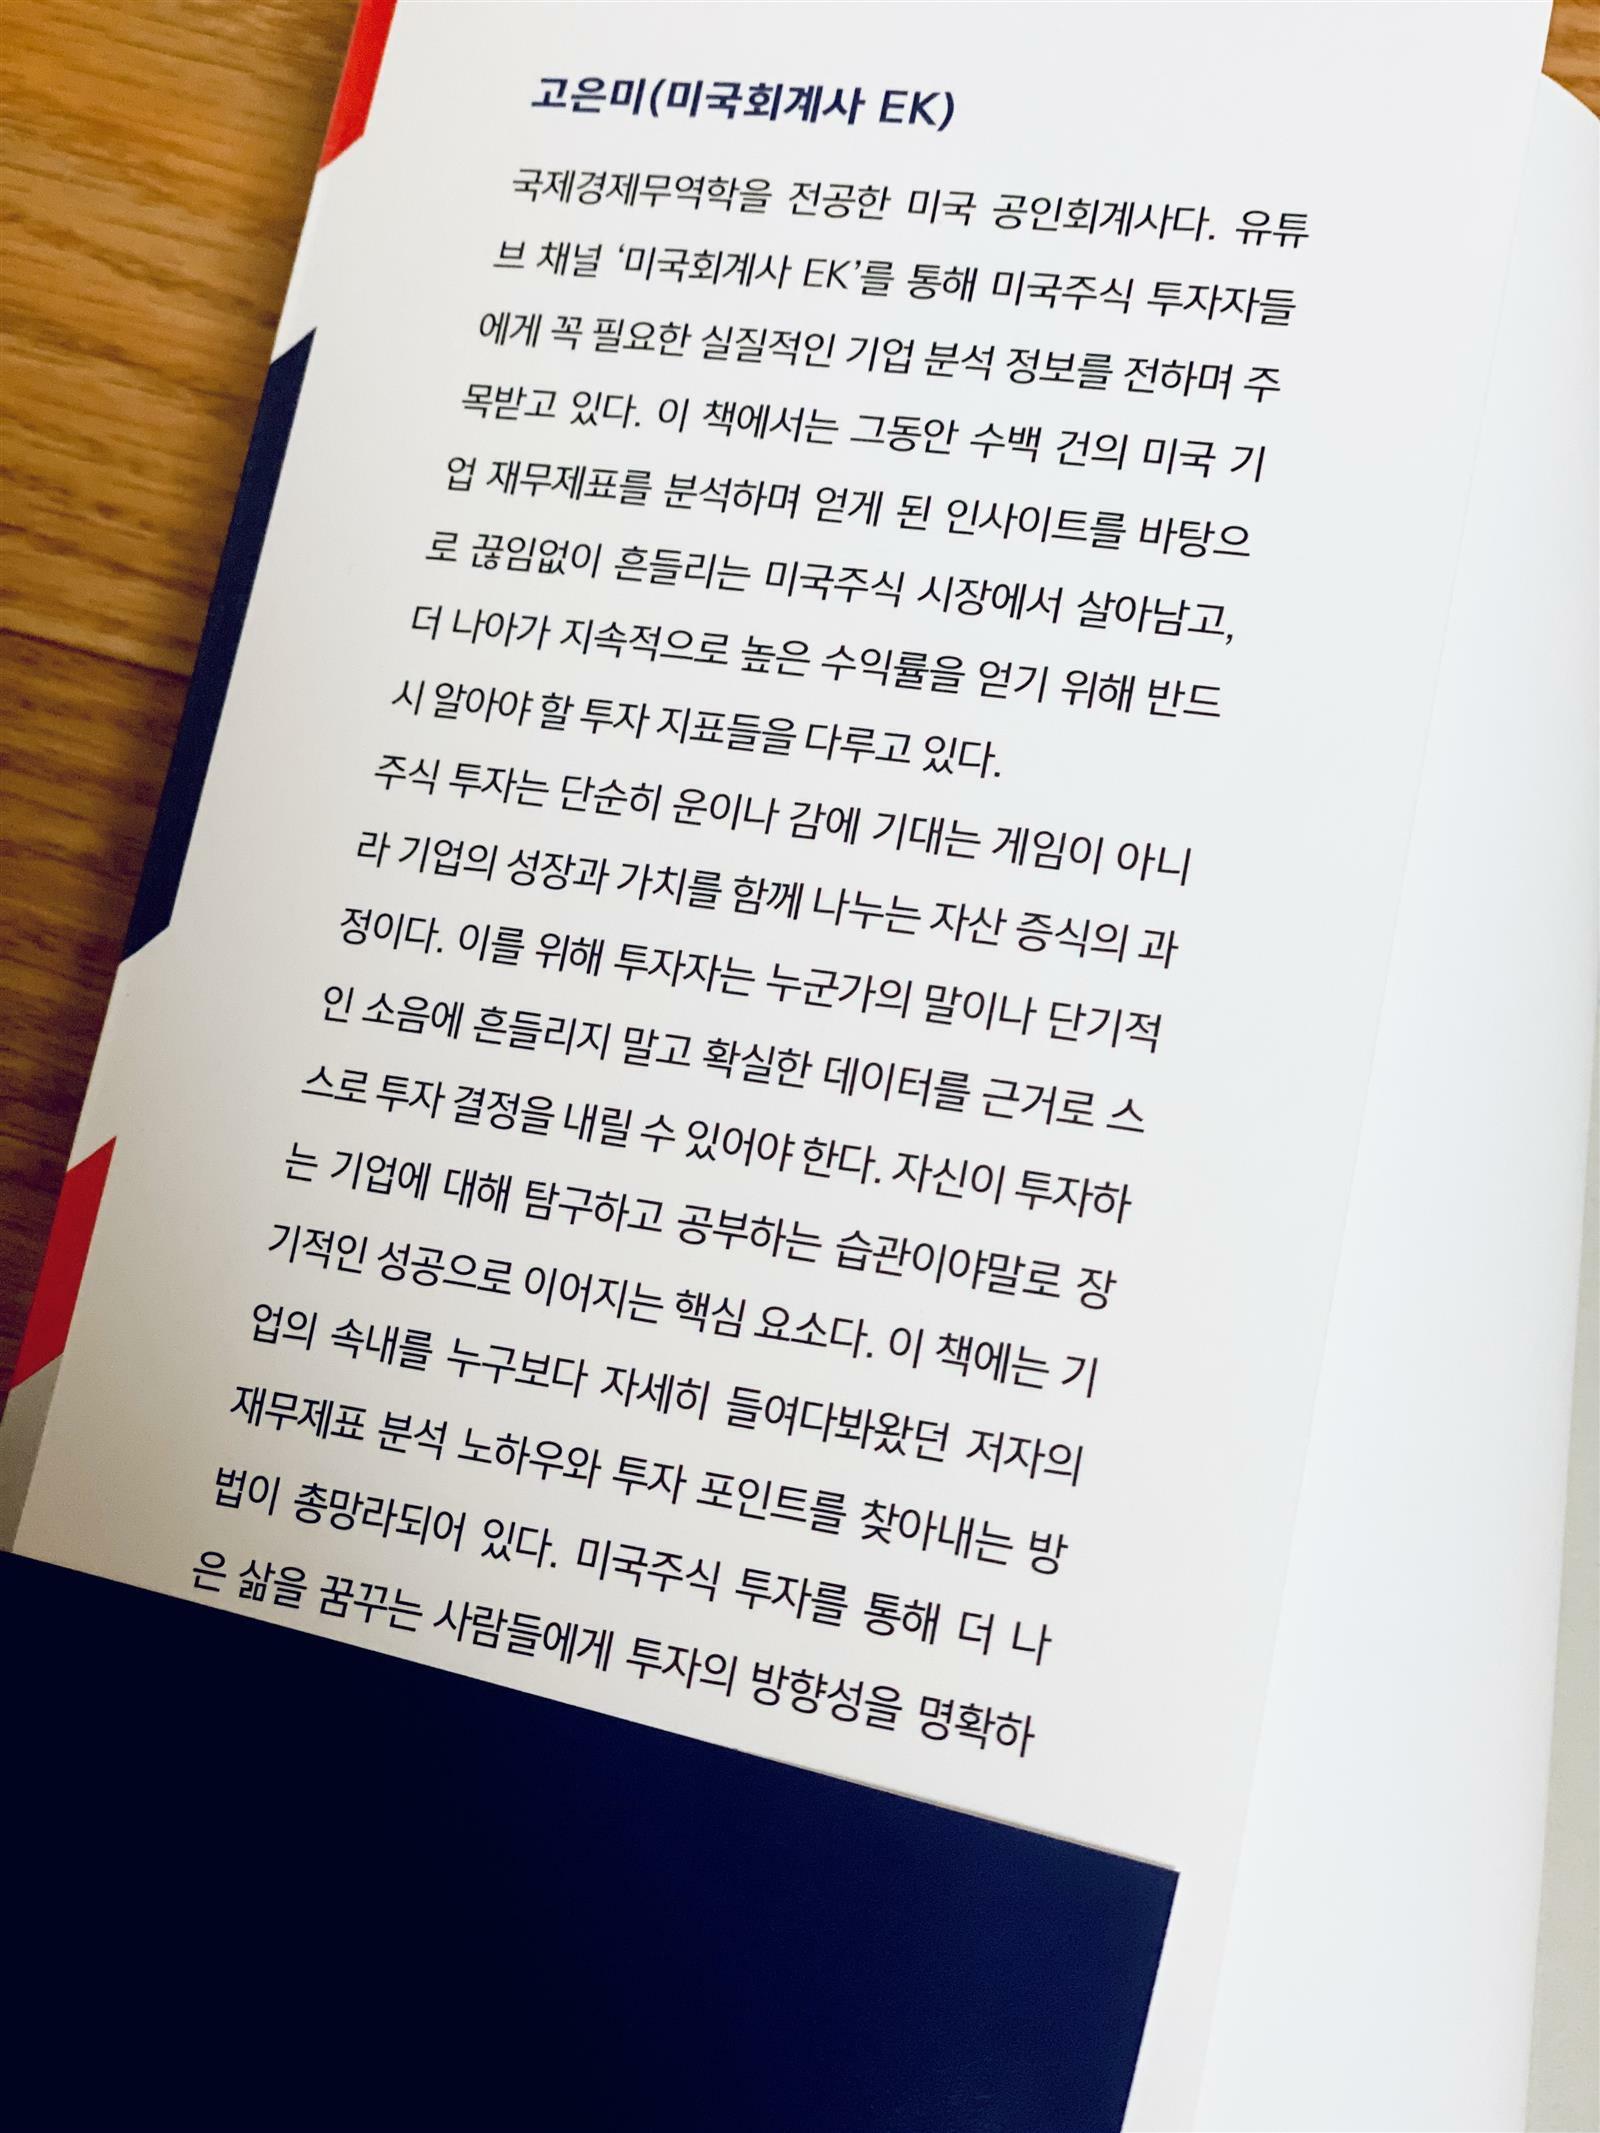 고은미(미국회계사 EK)
국제경제무역학을 전공한 미국 공인회계사다. 유튜
브 채널 ‘미국회계사 EK’를 통해 미국주식 투자자들
에게 꼭 필요한 실질적인 기업 분석 정보를 전하며 주
목받고 있다. 이 책에서는 그동안 수백 건의 미국 기
업 재무제표를 분석하며 얻게 된 인사이트를 바탕으
로 끊임없이 흔들리는 미국주식 시장에서 살아남고,
더 나아가 지속적으로 높은 수익률을 얻기 위해 반드
시 알아야 할 투자 지표들을 다루고 있다.
주식 투자는 단순히 운이나 감에 기대는 게임이 아니
라 기업의 성장과 가치를 함께 나누는 자산 증식의 과
정이다. 이를 위해 투자자는 누군가의 말이나 단기적
인 소음에 흔들리지 말고 확실한 데이터를 근거로 스
스로 투자 결정을 내릴 수 있어야 한다. 자신이 투자하
는 기업에 대해 탐구하고 공부하는 습관이야말로 장
기적인 성공으로 이어지는 핵심 요소다. 이 책에는 기
업의 속내를 누구보다 자세히 들여다봐왔던 저자의
재무제표 분석 노하우와 투자 포인트를 찾아내는 방
법이 총망라되어 있다. 미국주식 투자를 통해 더 나
은 삶을 꿈꾸는 사람들에게 투자의 방향성을 명확하